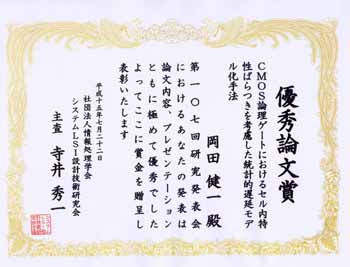 優秀論文賞
CMOS論理ゲートにおけるセル内特
性ばらつきを考慮した統計的遅延モデ
ル化手法
岡田 健一 殿
第一〇七回研究発表会
におけるあなたの発表は
論文内容、プレゼンテーション
ともに極めて優秀でした
よってここに賞金を贈呈し
表彰いたします
平成十五年七月二十二日
社団法人情報処理学会
システムLSI設計技術研究会
主査 寺井 秀一